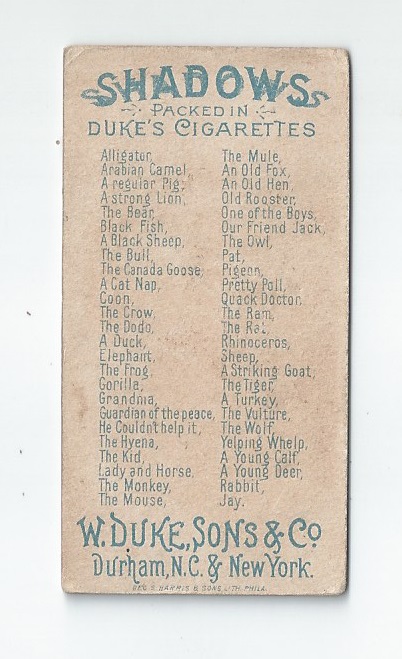 SHADOWS
PACKED IN
DUKE'S CIGARETTES
Alligator,
Arabian Camel,
A regular Pig,
A strong Lion,
The Bear,
Black Fish,
A Black Sheep,
The Bull,
The Canada Goose,
A Cat Nap,
Coon,
The Crow,
The Dodo,
A Duck,
Elephant,
The Frog,
Gorilla,
Grandma,
Guardian of the peace,
He Couldnt help it,
The Hyena,
The Kid,
Lady and Horse,
The Monkey,
The Mouse,
The Mule,
An Old Fox,
An Old Hen,
Old Rooster,
One of the Boys,
Our Friend Jack,
The Owl,
Pat,
Pigeon,
Pretty Poll,
Quack Doctor,
The Ram,
The Rat,
Rhinoceros,
Sheep,
A Striking Goat,
The Tiger,
A Turkey,
The Vulture,
The Wolf,
Yelping Whelp,
A Young Calf,
A Young Deer,
Rabbit,
Jay.
W. DUKE, SONS & Co
Durham, N.C. & New York.
GEO. S. HARRIS & SONS LITH. PHILA.